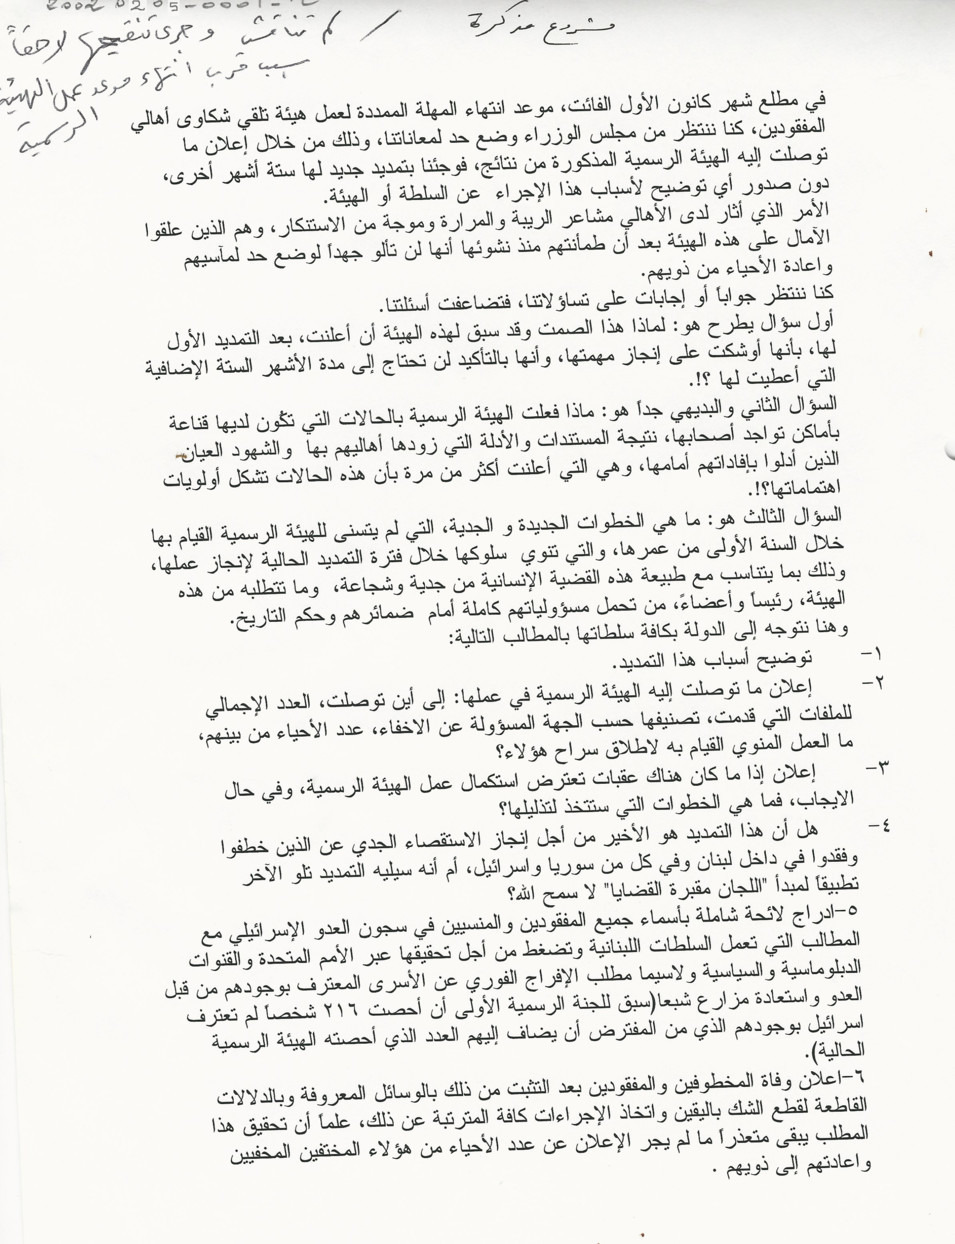 2002 0205-0001-
مشروع مذكرة / لم تناقش وجرى تنقيحها لاحقاً
بسبب قرب انتهاء موعد عمل الهيئة
الرسمية
في مطلع شهر كانون الأول الفائت، موعد انتهاء المهلة الممددة لعمل هيئة تلقي شكاوى أهالي
المفقودين، كنا ننتظر من مجلس الوزراء وضع حد لمعاناتنا، وذلك من خلال إعلان ما
توصلت إليه الهيئة الرسمية المذكورة من نتائج، فوجئنا بتمديد جديد لها ستة أشهر أخرى،
دون صدور أي توضيح لأسباب هذا الإجراء عن السلطة أو الهيئة.
الأمر الذي أثار لدى الأهالي مشاعر الريبة والمرارة وموجة من الاستنكار، وهم الذين علقوا
الآمال على هذه الهيئة بعد أن طمأنتهم منذ نشوئها أنها لن تألو جهداً لوضع حد لمآسيهم
واعادة الأحياء من ذويهم.
كنا ننتظر جواباً أو إجابات على تساؤلاتنا، فتضاعفت أسئلتنا.
أول سؤال يطرح هو: لماذا هذا الصمت وقد سبق لهذه الهيئة أن أعلنت، بعد التمديد الأول
لها، بأنها أوشكت على إنجاز مهمتها، وأنها بالتأكيد لن تحتاج إلى مدة الأشهر الستة الإضافية
التي أعطيت لها ؟!.
السؤال الثاني والبديهي جداً هو: ماذا فعلت الهيئة الرسمية بالحالات التي تكُون لديها قناعة
بأماكن تواجد أصحابها، نتيجة المستندات والأدلة التي زودها أهاليهم بها والشهود العيان
الذين أدلوا بإفاداتهم أمامها، وهي التي أعلنت أكثر من مرة بأن هذه الحالات تشكل أولويات
اهتماماتها؟!.
السؤال الثالث هو: ما هي الخطوات الجديدة و الجدية، التي لم يتسنى للهيئة الرسمية القيام بها
خلال السنة الأولى من عمرها، والتي تنوي سلوكها خلال فترة التمديد الحالية لإنجاز عملها،
وذلك بما يتناسب مع طبيعة هذه القضية الإنسانية من جدية وشجاعة، وما تتطلبه من هذه
الهيئة، رئيساً وأعضاءً، من تحمل مسؤولياتهم كاملة أمام ضمائرهم وحكم التاريخ.
وهنا نتوجه إلى الدولة بكافة سلطاتها بالمطالب التالية:
١- توضيح أسباب هذا التمديد.
٢- إعلان ما توصلت إليه الهيئة الرسمية في عملها: إلى أين توصلت، العدد الإجمالي
للملفات التي قدمت، تصنيفها حسب الجهة المسؤولة عن الاخفاء، عدد الأحياء من بينهم،
ما العمل المنوي القيام به لاطلاق سراح هؤلاء؟
٣- إعلان إذا ما كان هناك عقبات تعترض استكمال عمل الهيئة الرسمية، وفي حال
الايجاب، فما هي الخطوات التي ستتخذ لتذليلها؟
٤- هل أن هذا التمديد هو الأخير من أجل إنجاز الاستقصاء الجدي عن الذين خطفوا
وفقدوا في داخل لبنان وفي كل من سوريا واسرائيل، أم أنه سيليه التمديد تلو الآخر
تطبيقاً لمبدأ "اللجان مقبرة القضايا" لا سمح الله؟
٥-ادراج لائحة شاملة بأسماء جميع المفقودين والمنسيين في سجون العدو الإسرائيلي مع
المطالب التي تعمل السلطات اللبنانية وتضغط من أجل تحقيقها عبر الأمم المتحدة والقنوات
الدبلوماسية والسياسية ولاسيما مطلب الإفراج الفوري عن الأسرى المعترف بوجودهم من قبل
العدو واستعادة مزارع شبعا(سبق للجنة الرسمية الأولى أن أحصت ٢١٦ شخصاً لم تعترف
اسرائيل بوجودهم الذي من المفترض أن يضاف إليهم العدد الذي أحصته الهيئة الرسمية
الحالية).
٦-اعلان وفاة المخطوفين والمفقودين بعد التثبت من ذلك بالوسائل المعروفة وبالدلالات
القاطعة لقطع الشك باليقين واتخاذ الإجراءات كافة المترتبة عن ذلك، علماً أن تحقيق هذا
المطلب يبقى متعذراً ما لم يجر الإعلان عن عدد الأحياء من هؤلاء المختفين المخفيين
واعادتهم إلى ذويهم .